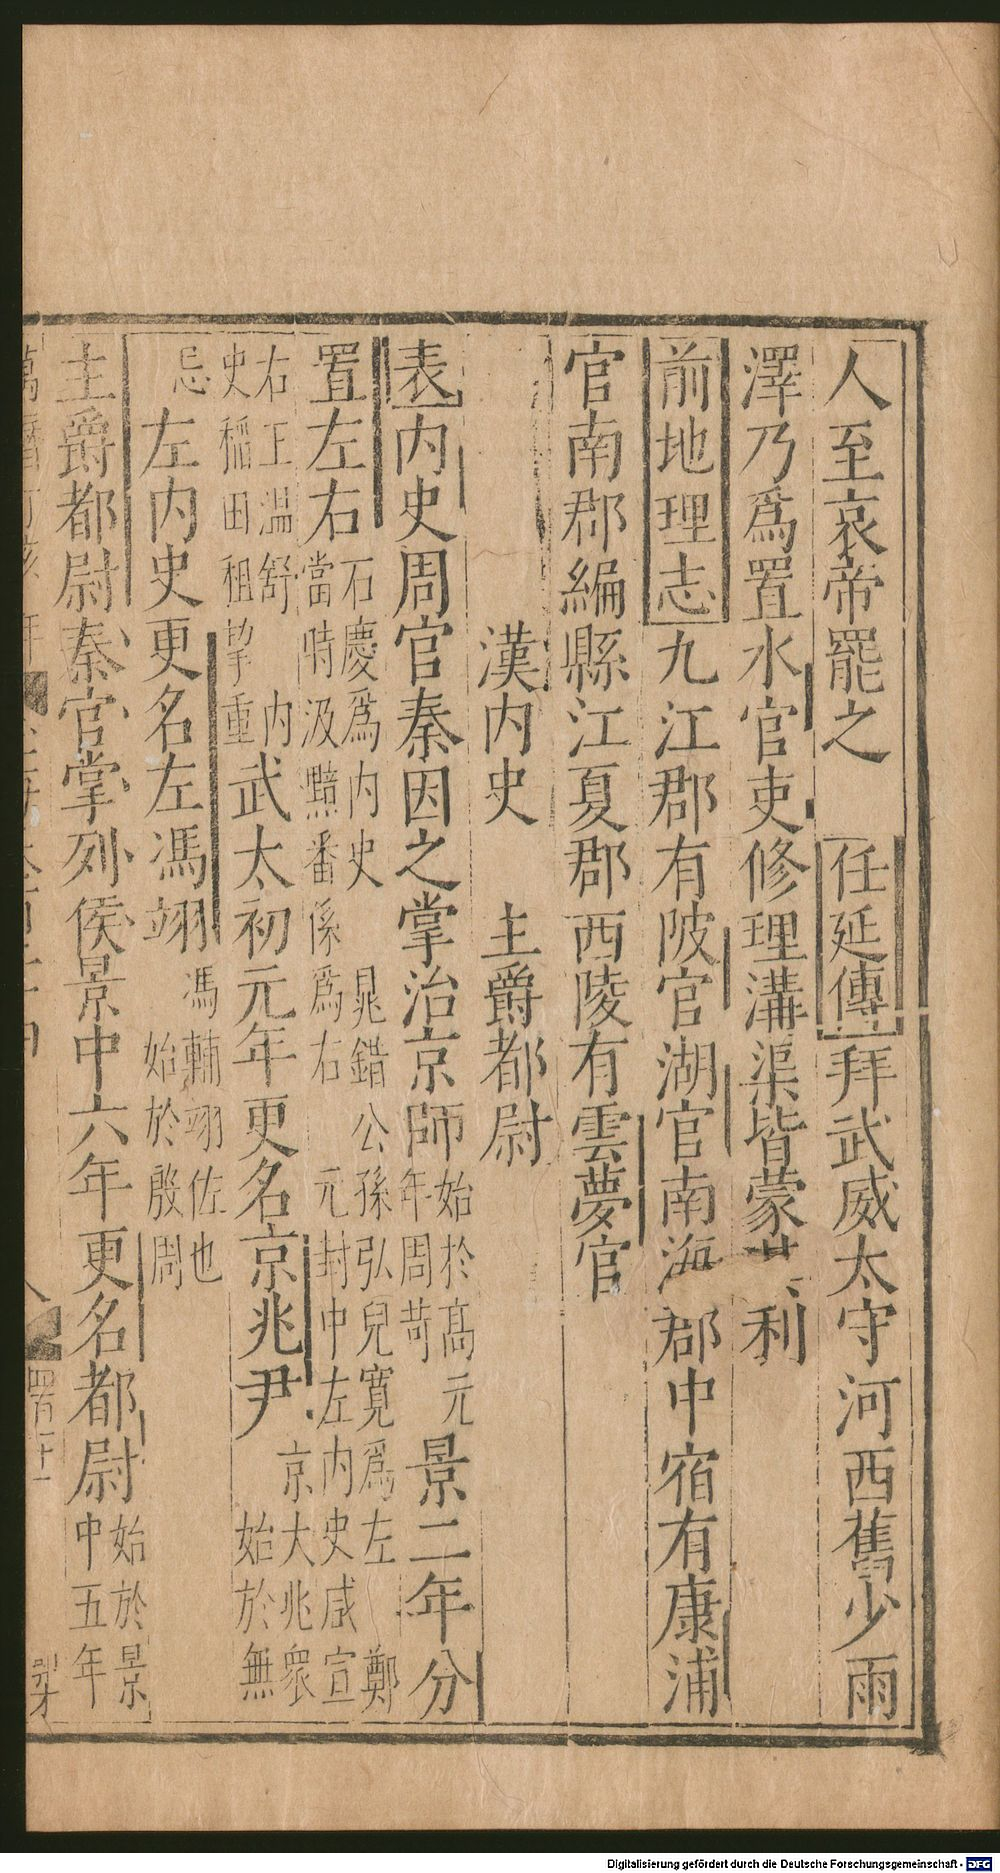 人至哀帝罷之　任延傳拜武威太守河西舊少雨
澤乃爲置水官吏修理溝渠皆蒙　利
前地理志九江郡有陂官湖官南海郡中宿有康浦
官南郡編縣江夏郡西陵有雲夢官
漢内史　主爵都尉
表内史周官秦因之掌治京師始於高元年周苛景二年分
置左右石慶爲内史當時汲黯番係爲右晁錯公孫弘兒寬爲左鄭元封中左内史咸宣
右王温舒内史稲田租挈重武太初元年更名京兆尹京大兆衆始於無
忌左内史更名左馮翊馮輔翊佐也始於殷周
主爵都尉秦官掌列侯景中六年更名都尉始於景中五年
Digitalisierung gefördert durch die Deutsche Forschungsgemeinschaft - DFG